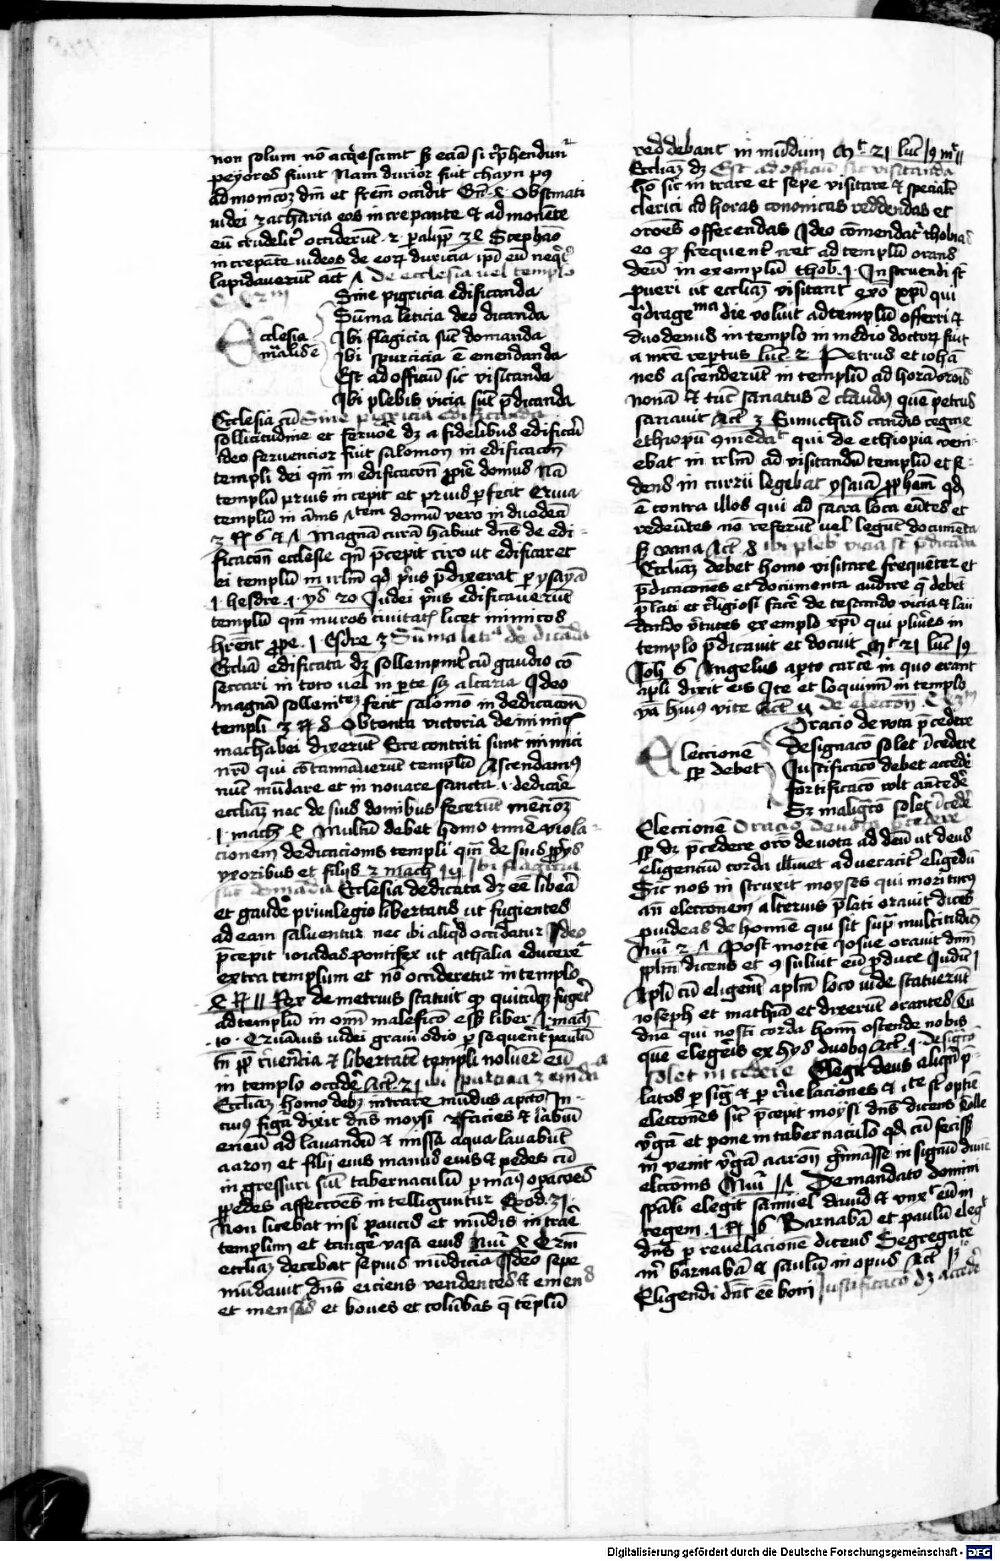 non solum nō acq̄escunt sꝫ eciā si cͦp̄hendunͬ
peyores fiunt Nam durior fuit chayn pꝰ
ad monicoꝫ dni et frēm occidit Gñ. 4. Obstinati
iudei zacharia eos increpante & ad monēte
eū crudelitͬ occiderūt. 2. palipͫ 24 Stephāo
increpāte iudeos de eoꝝ duricia ipi eū neqͭ
lapidauerunt act 7 De ecclesia uel templo
Sine pigricia edificanda
Sūma leticia deo dicanda
Ecclesia
Ibi flagicia sūt domanda
Ibi spurcicia ē emendanda
Est ad officiū sic visitanda
Ibi plebis vicia sūt p̄dicanda
Ecclesia cū Sine pigricia edificanda
sollicitudine et feruoē dꝫ a fidelibus edificaͥ
Ideo feruencior fuit salomon in edificacōn
templi dei qm̄ in edificacōn ꝓpͥe domus Nā
templū prius incepit et prius ꝑfecit Erma
templū in ānis 7tem domū vero in duodecī
3 R̄ 6 & 7 Magnā curā habuit dn̄s de edi-
ficacōn ecclesie qn̄ p̄cepit ciro ut edificaret
ei templū in irlm̄ qd p̄us p̄dixerat ꝑ ysayā
Iudei p̄us edificauerūt
templū qm̄ muros ciuitatͭ licet inimicos
hr̄ent ꝓpe. 1 Esdre 3 Sūma letiͣ dō dicāda
Ecclīa edificata dꝫ sollempnitͬ cū gaudio cō
seccari in toto uel in ꝑte sꝫ altaria Ideo
magnā sollemͭteꝫ fecit salomō in dedicacōn
templi 3 R̄ 8 Obtenta victoria de inimicͭ
machabei dixerūt Ecce contriti sunt inimici
nr̄i qui cōtaminauerūt templū Ascendamꝰ
nūc mūdare et in nouare sancta .i. dedicar̄e
ecclīaꝫ nec de suis domibus fecerūt menciōꝫ
.1. mach 4 Multū debet homo timē viola-
cionem dedicacionis templi qm̄ de suis ꝓpͥis
vxoribus et filiis 2 mach Ibi flagicia
sūt domāda Ecclesia dedicata dꝫ eē liberͣ
et gaudē priuilegio libertatis ut fugientes
ad eam saluentur nec ibi aliqͥd occidatur Ideo
p̄cepit ioiadas pontifex ut athalia educereͬ
extra templum et nō occideretur in templo
4 R̄ 11 Rex demetrius statuit qͥ quicūqꝫ fugērͭ
ad templū in om̄i maleficō esset liber 1 mach
10. Quāuis iudei graui odio ꝑsequērͭ paulū
tn̄ ꝓp̄ rͤuerēcia & libertatē templi noluerͭ eū
in templo occidͤ Act. 21 ibi spurcicia ē emēdāda
Ecclīaꝫ homo debꝫ intrare mūdus a pctō In-
cuiꝰ figa dixit dn̄s moysi facies & labiū
eneū ad lauandū & missa aqua lauabūt
aaron et filii eius manus eius & pedes cū
in gressuri sūt tabernaculū ꝑ manꝰ oꝑacōes
ꝑ pedes affecciōes intelliguntur Exod. 31.
Non licebat nisi paucis et mūdis intraͤ
templum et tangͤ vasa eius Nuͥ 4
ecclīaꝫ decebat sepius mūdicia Ideo sepe
mūdauit dn̄s eiciens vendentes & ementͤs
et mensas et boues et colūbas q̄ tēplū
reddebant in mūdum Mͭ 21 luc 19 mͬ 11
Ecclīaꝫ dꝫ Est ad officiū sic visitanda
hō sic intrare et sepe visitare & specialitͬ
clerici ad horas cononicas reddendas et
orōes offerendas Ideo cōmendatͬ thobias
eo qͥ frequentͬ iret ad templū orans
deū in exemplū thob. 1. Instruendi sͭ
pueri ut ecclīaꝫ visitant exō xp̄i qui
qͣdrage ma die voluit ad templū offerri &
duodenus in templo in medio doctoꝝ fuit
a mr̄e repertus luc. 2. Petrus et iohā
nes ascenderūt in templū ad horā orōis
nonā & tūc sanatus ē claudꝰ que petrus
sanauit Act 3 Eunuchus candis regine
ethiopū ꝯmēdatͬ qui de ethiopia veni
ebat in irlm̄ ad visitandū templū et se-
dens in currū legebat ysaiā ꝓphām qd
ē contra illos qui ad sacra loca eūtes et
redeūtes nō referūt uel legūt documēta
sꝫ vana Act 8 ibi plebͭ vicia sͭ p̄dicāda
Ecclīaꝫ debet homo visitare frequēter et
p̄dicacones et documenta audire q̄ debēt
p̄lati et rͤligiosi facͤ de testando vicia & lau
dando vͬtutes exemplo xp̄i qui plurīes in
templo p̄dicauit et docuit Mͭ 21 luc 19
Joh 6 Angelus apto carcͤe in quo erant
apl̄i dixit eis Ite et loquimī in templo
vͣba huiꝰ vite Act 5 De eleccōn
Oracio deuota p̄cedere
Eleccionē
sp̄ debet
designacō solet īcedere
Justificacō debet accedͤ
fortificacō volt an̄tedͤ
Sꝫ malignͬcō solet īcedͤ
Eleccionē Oracio deuota p̄cedere
sp̄ dꝫ p̄cedere orō deuota ad deū ut deus
eligenciū corda illuīet ad veracitͬ eligedū
Sic nos in struxit moyses qui moriturꝰ
an̄ eleccōnem alterius p̄lati orauit dicēs
ꝓuideas de homīe qui sit supͣ multitudiēꝫ
Nuͥ 27 Post mortē iosue orauit dn̄m
pplm̄ dicens et ꝯsuluit eū ꝓ duce Judicū 1
Apl̄i cū eligerētͬ aplm̄ loco iude statuerūt
ioseph et mathyā et dixerūt orantes Tu
dn̄e qui nosti corda hoīm ostende nobis
que elegeris ex hijs duobꝰ Act. 1. designacͦ
solet incedere Elegit deus aliqn̄ p̄-
latos ꝑ signͣ & ꝑ rͤuelaciones & iste sͭ optīe
eleccōnes sic p̄cepit moysi dn̄s dicens Tolle
vͥgā et pone in tabernaculo qd cū fecisset
in uenit vͥgā aaron gͥminasse in signū diuīe
elecōnis Nuͥ 17 De mandato domini
sp̄ali elegit samuel dauid & vnxit eū in
regem .1. R̄ 16 Barnabā et paulū elegͭ
dn̄s ꝑ reuelacionē dicens Segregate
mͥ barnabā & saulū in opus Act 13
Eligendi dn̄t eē boni Justificacō dꝫ accedͤ
Digitalisierung gefördert durch die Deutsche Forschungsgemeinschaft - DFG